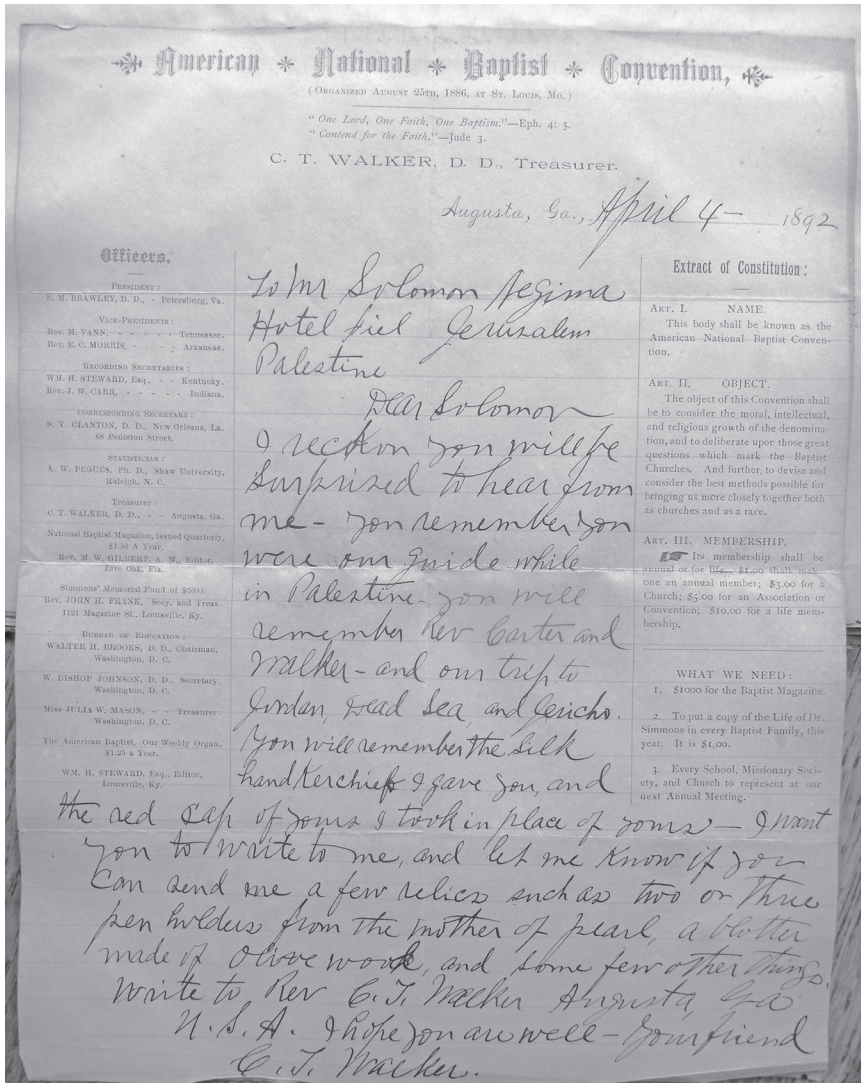 American * National * Baptist * Convention,
(ORGANIZED AUGUST 25TH, 1886, AT ST. LOUIS, MO.)
"One Lord, One Faith, One Baptism."—Eph. 4: 5.
"Contend for the Faith."—Jude 3.
C. T. WALKER, D. D., Treasurer.
Augusta, Ga., April 4 — 1892
Officers.
PRESIDENT:
E. M. BRAWLEY, D. D., - Petersburg, Va.
VICE-PRESIDENTS:
Rev. M. VANN, - - - - - Tennessee.
Rev. E. C. MORRIS, - - - - ; Arkansas.
RECORDING SECRETARIES:
WM. H. STEWARD, Esq., - - Kentucky.
Rev. J. W. CARR, - - - - - Indiana.
CORRESPONDING SECRETARY:
S. T. CLANTON, D. D., New Orleans, La.
68 Peniston Street.
STATISTICIAN:
A. W. PEGUES, Ph. D., Shaw University,
Raleigh, N. C.
Treasurer:
C. T. WALKER, D. D., - - Augusta, Ga.
National Baptist Magazine, issued Quarterly,
$1.50 A Year.
Rev. M. W. GILBERT, A. M., Editor,
Live Oak, Fla.
Simmons' Memorial Fund of $5000.
Rev. JOHN H. FRANK, Secy, and Treas.
1121 Magazine St., Louisville, Ky.
BUREAU OF EDUCATION:
WALTER H. BROOKS, D. D., Chairman,
Washington, D. C.
W. BISHOP JOHNSON, D. D., Secretary.
Washington, D. C.
Miss JULIA W. MASON, - - Treasurer.
Washington, D. C.
The American Baptist, Our Weekly Organ,
$1.25 a Year.
WM. H. STEWARD, Esq., Editor,
Louisville, Ky.
To Mr Solomon Negima
Hotel Fiel Jerusalem
Palestine
Dear Solomon
I reckon you will be
surprized to hear from
me - you remember you
were our guide while
in Palestine - you will
remember Rev Carter and
Walker - and our trip to
Jordan, Dead Sea, and Jericho.
You will remember the silk
handkerchief I gave you, and
the red cap of yours I took in place of yours — I want
you to write to me, and let me know if you
can send me a few relics such as two or three
pen holders from the mother of pearl, a blotter
made of olive wood, and some few other things.
Write to Rev C. T. Walker Augusta, Ga
U. S. A. I hope you are well - Your friend
C. T. Walker.
Extract of Constitution:
ART. I. NAME.
This body shall be known as the
American National Baptist Conven-
tion.
ART. II. OBJECT.
The object of this Convention shall
be to consider the moral, intellectual,
and religious growth of the denomina-
tion, and to deliberate upon those great
questions which mark the Baptist
Churches. And further, to devise and
consider the best methods possible for
bringing us more closely together both
as churches and as a race.
ART. III. MEMBERSHIP.
☛ Its membership shall be
annual or for life. $1.00 shall make
one an annual member; $3.00 for a
Church; $5.00 for an Association or
Convention; $10.00 for a life mem-
bership.
WHAT WE NEED:
1. $1000 for the Baptist Magazine.
2. To put a copy of the Life of Dr.
Simmons in every Baptist Family, this
year. It is $1.00.
3. Every School, Missionary Soci-
ety, and Church to represent at our
next Annual Meeting.